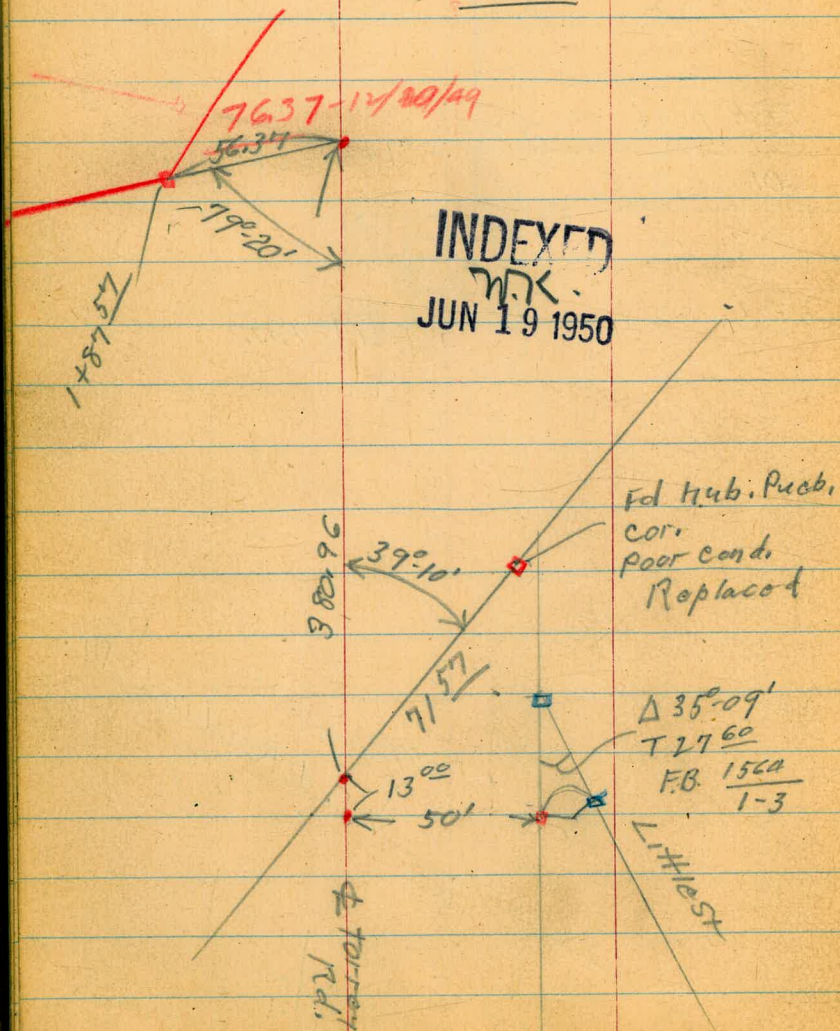 76.37-12/20/49
56.37
79°-20'
1+87 57
INDEXED
JUN 19 1950
Fd Hub. Pueb.
cor.
Poor cond.
Replaced
39°-10'
380.96
71 57
Δ 35°-09'
T 27 60
F.B. 1560
1-3
13 00
50'
Little St
℄ Torrey
Rd.